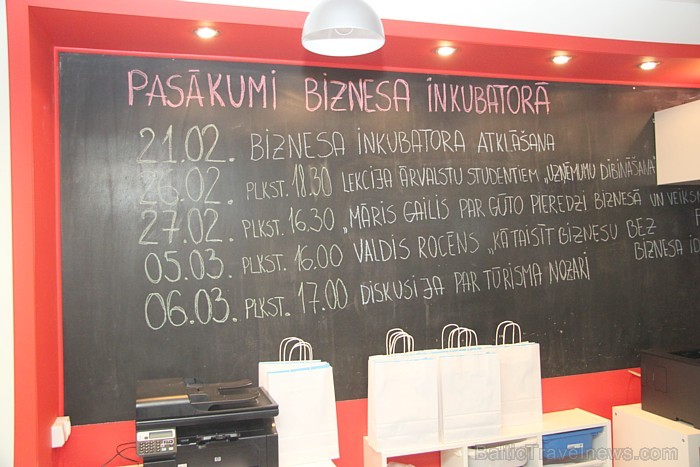 PASĀKUMI BIZNESA INKUBATORĀ
21.02. BIZNESA INKUBATORA ATKLĀŠANA
26.02. PLKST. 18.30 LEKCIJA ĀRVALSTU STUDENTIEM „UZŅĒMUMU DIBINĀŠANA"
27.02. PLKST. 16.30 „MĀRIS GAILIS PAR GŪTO PIEREDZI BIZNESĀ UN
05.03. PLKST. 16.00 VALDIS ROCĒNS „KĀ TAISĪT BIZNESU BEZ
BIZNESA
06.03. PLKST. 17.00 DISKUSIJA PAR TŪRISMA NOZARI
BalticTravelnews.com